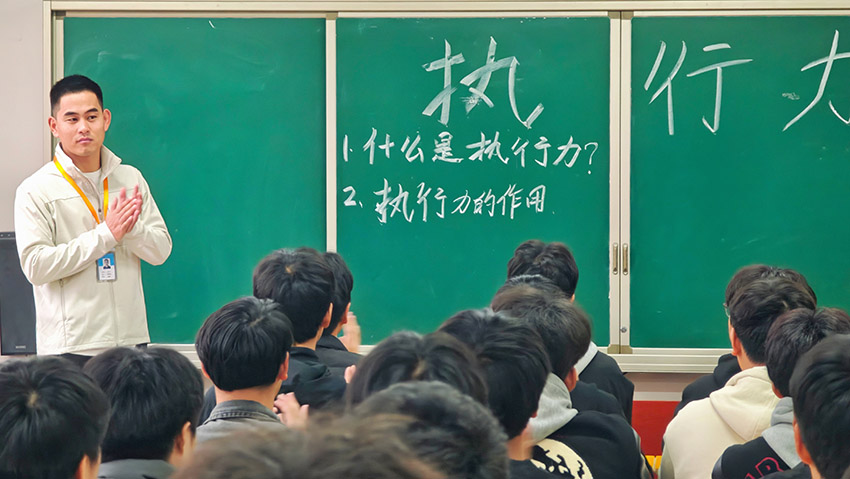 执行力
1.什么是执行力?
2.执行力的作用